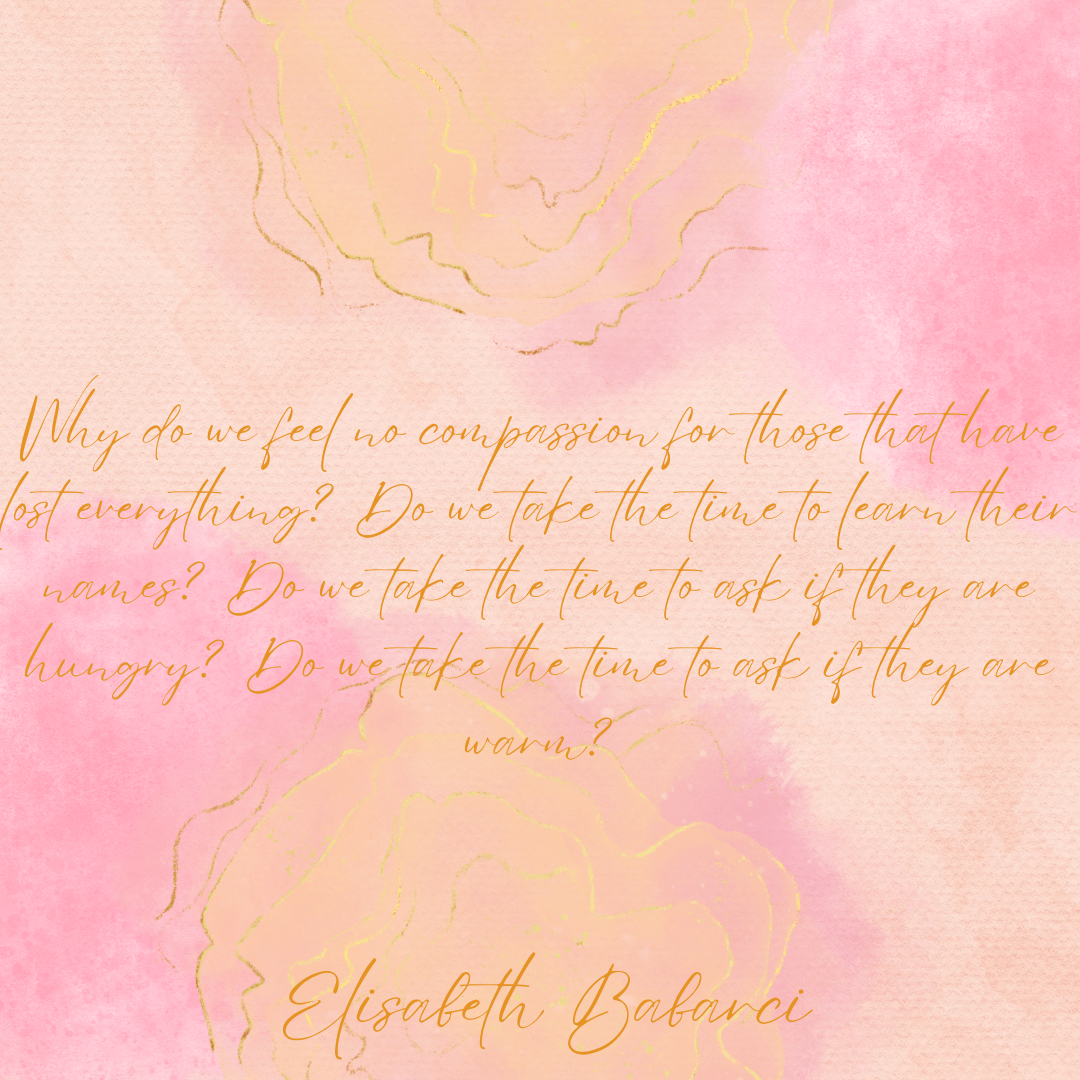 Why do we feel no compassion for those that have
lost everything? Do we take the time to learn their
names? Do we take the time to ask if they are
hungry? Do we take the time to ask if they are
warm?
Elisabeth Babarci